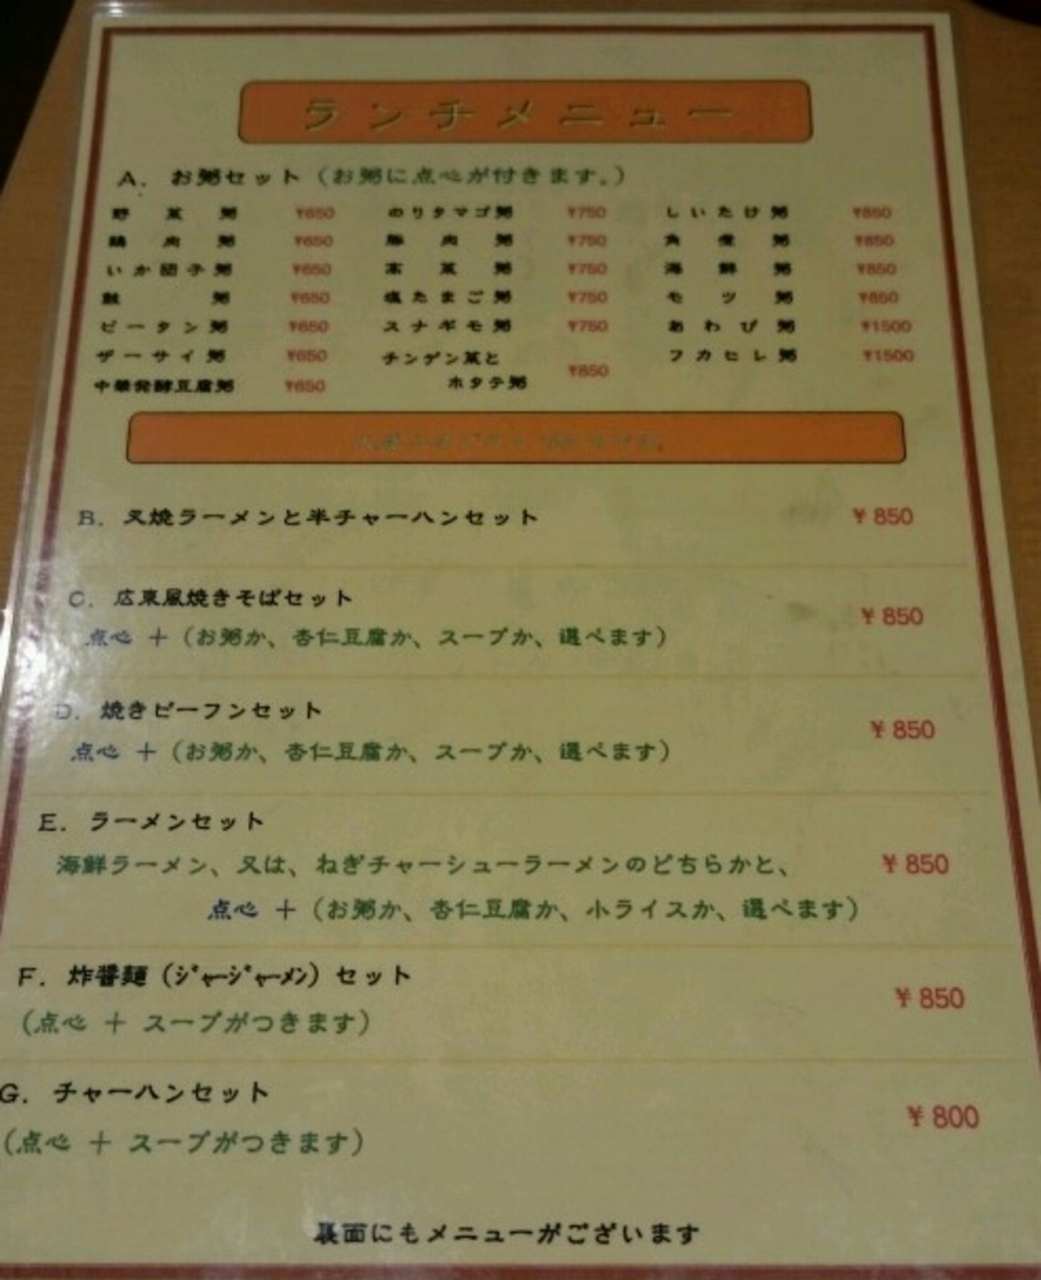 ランチメニュー
A. お粥セット（お粥に点心が付きます。）
野菜粥 ¥650 のりタマゴ粥 ¥750 しいたけ粥 ¥850
鶏肉粥 ¥650 豚肉粥 ¥750 ¥850
いか団子粥 ¥650 高菜粥 ¥750 海鮮粥 ¥850
粥 ¥650 塩たまご粥 ¥750 モツ粥 ¥850
ピータン粥 ¥650 スナギモ粥 ¥750 あわび粥 ¥1500
ザーサイ粥 ¥650 チンゲン菜と フカヒレ粥 ¥1500
中華発酵豆腐粥 ¥650 ホタテ粥 ¥850
B. 叉焼ラーメンと半チャーハンセット ¥850
C. 広東風焼きそばセット
点心 ＋（お粥か、杏仁豆腐か、スープか、選べます） ¥850
D. 焼きビーフンセット
点心 ＋（お粥か、杏仁豆腐か、スープか、選べます） ¥850
E. ラーメンセット
海鮮ラーメン、又は、ねぎチャーシューラーメンのどちらかと、 ¥850
点心 ＋（お粥か、杏仁豆腐か、小ライスか、選べます）
F. 炸醤麺（ｼﾞｬｰｼﾞｬｰﾒﾝ）セット
（点心 ＋ スープがつきます） ¥850
G. チャーハンセット
（点心 ＋ スープがつきます） ¥800
裏面にもメニューがございます